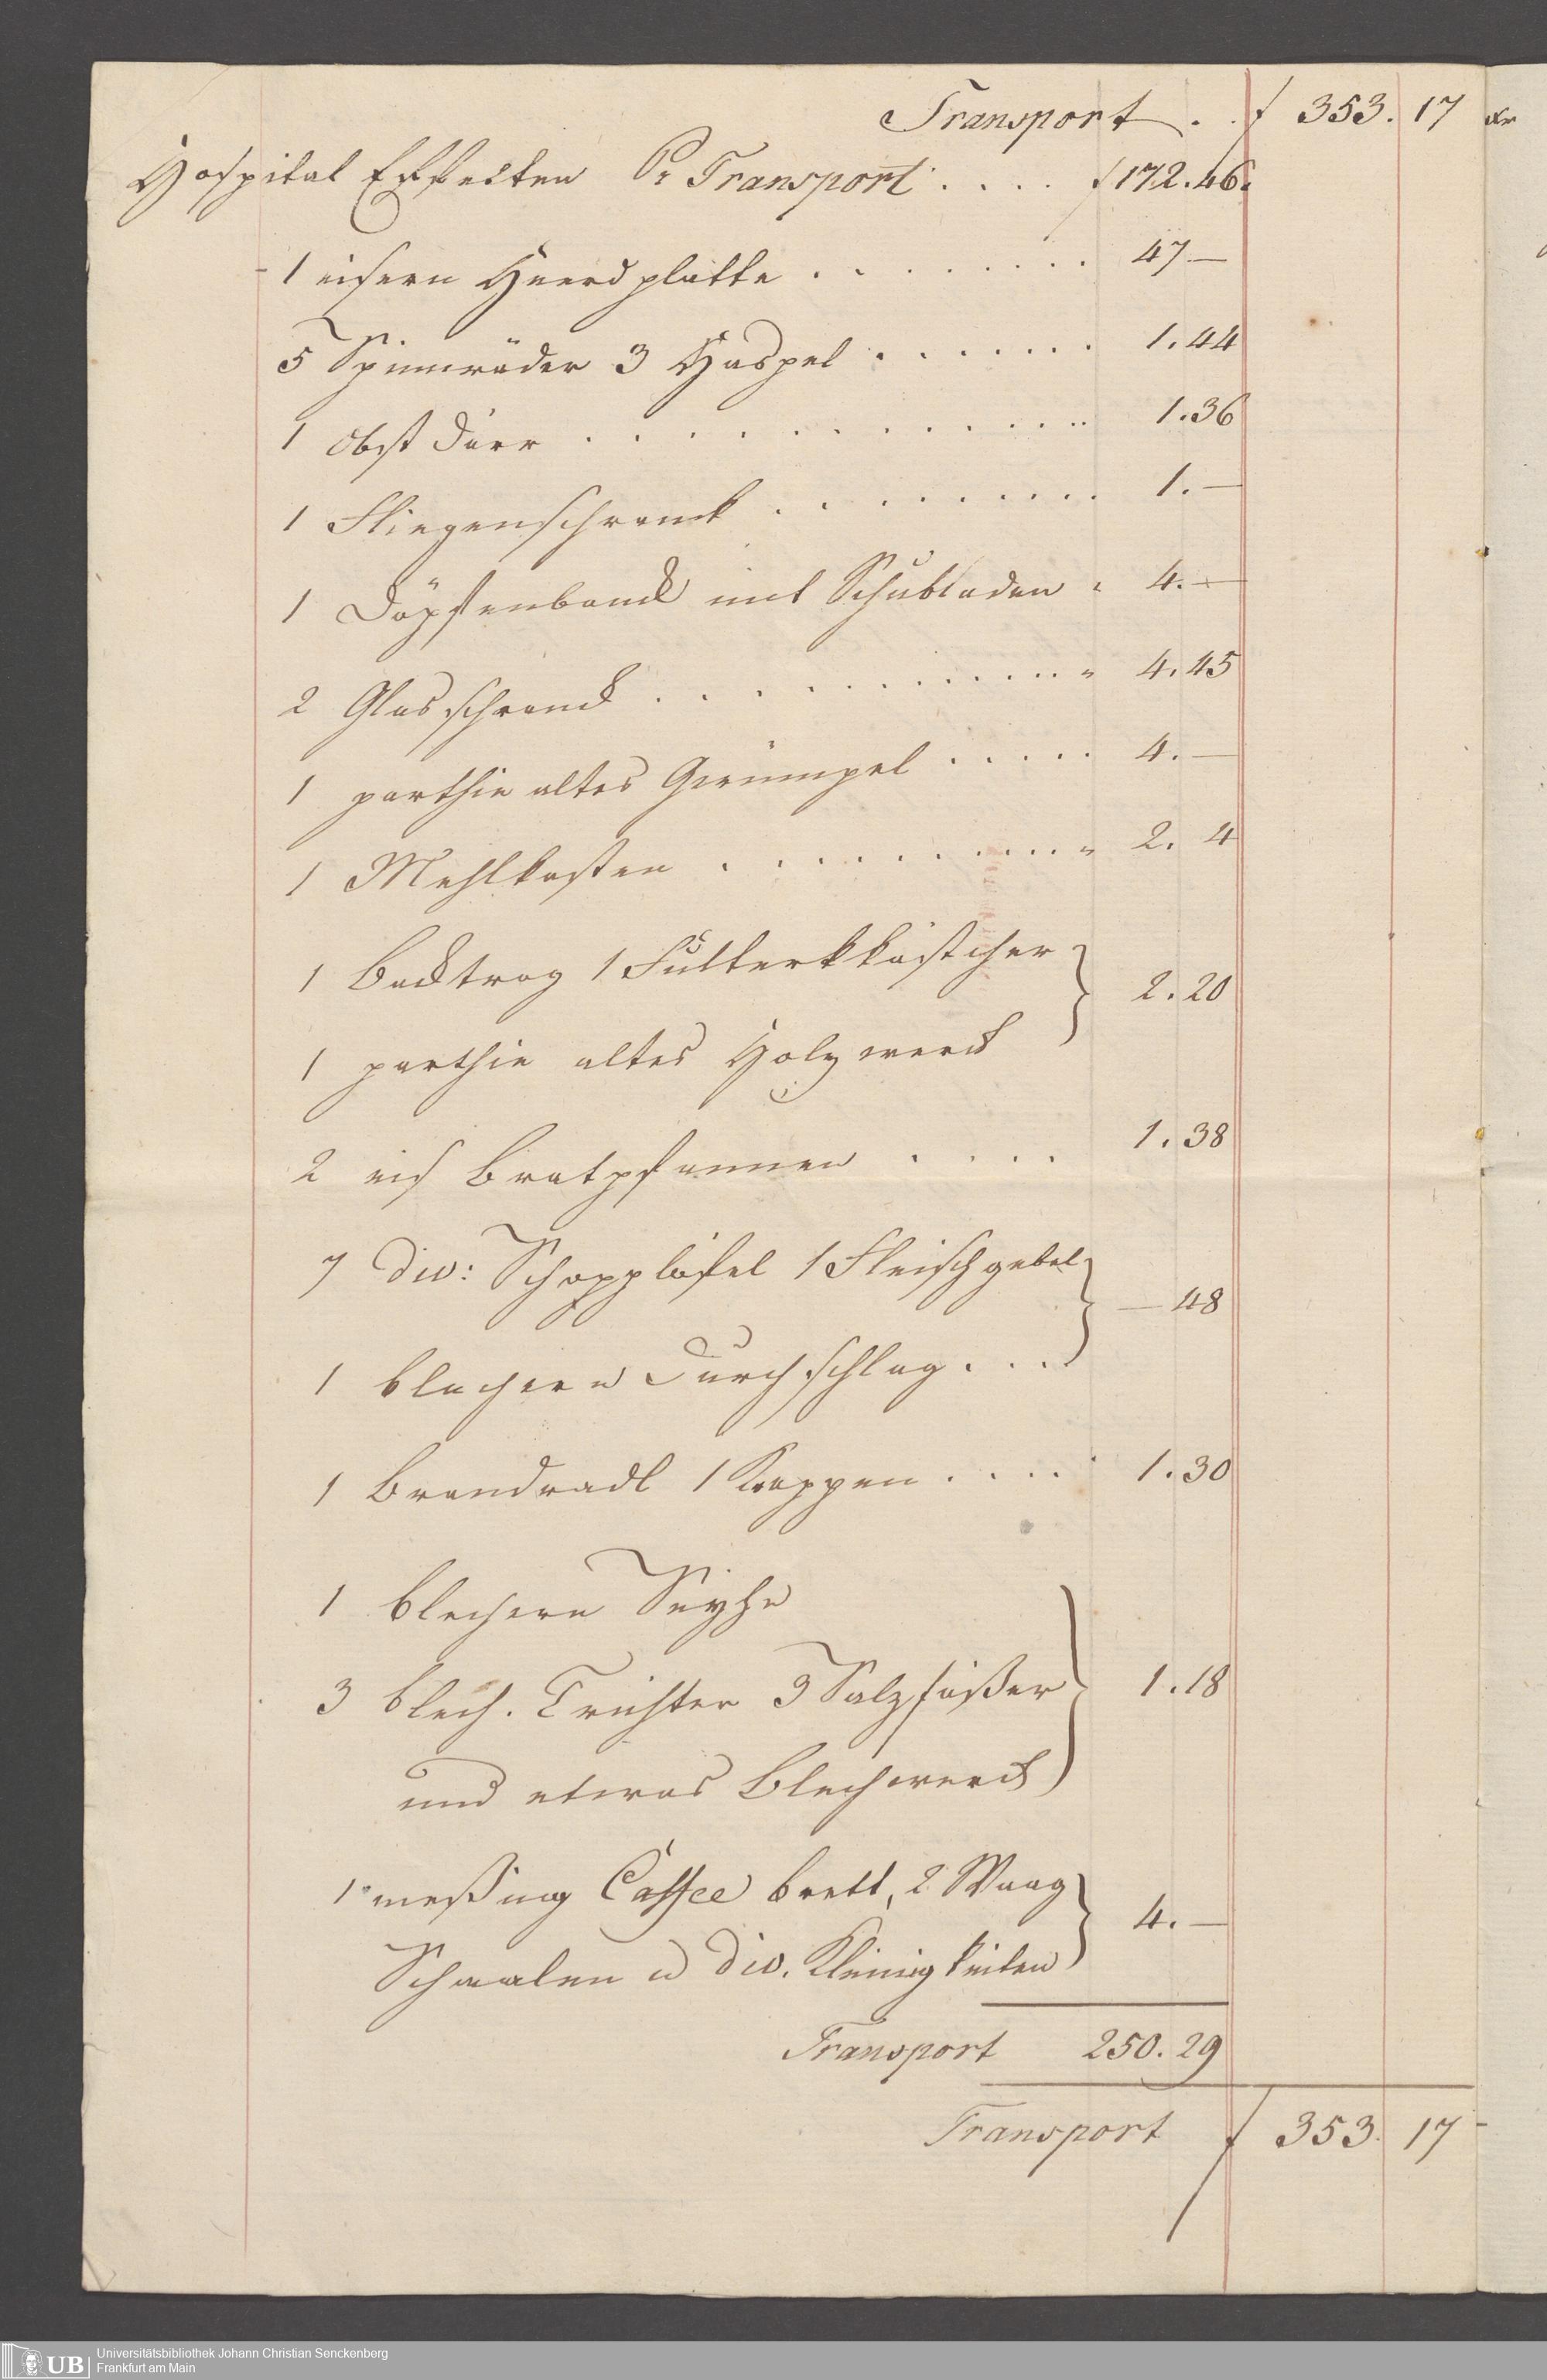 Transport . . f 353. 17 xr
Hospital Effecten Pr Transport . . . . f 172. 46.
1 eisern Heerdplatte . . . . . . . . . 47 —
5 Spinnräder 3 Haspel . . . . . . . . 1. 44
1 Obst Därr . . . . . . . . . . . . 1. 36
1 Fliegenschranck . . . . . . . . . . 1. —
1 Döpfenbanck mit Schubladen . 4. —
2 Glasschranck . . . . . . . . . . . . 4. 45
1 parthie altes Gerümpel . . . . . 4. —
1 Mehlkasten . . . . . . . . . . . 2. 4
1 Backtrog 1 Futterkkästcher
2. 20
1 parthie altes Holzwerck
2 eis Bratpfannen . . . . 1. 38
7 div: Schopplöfel 1 Fleischgabel
— 48
1 blechern Durchschlag . . . .
1 Brandradl 1 Krappen . . . . . 1. 30
1 blechern Seyhe
3 blech. Trichter 3 Salzfäßer 1. 18
und etwas Blechwerck
1 meßing Caffee brett, 2 Waag
4. —
Schaalen u div. Kleinigkeiten
Transport 250. 29
Transport f 353. 17
UB Universitätsbibliothek Johann Christian Senckenberg
Frankfurt am Main